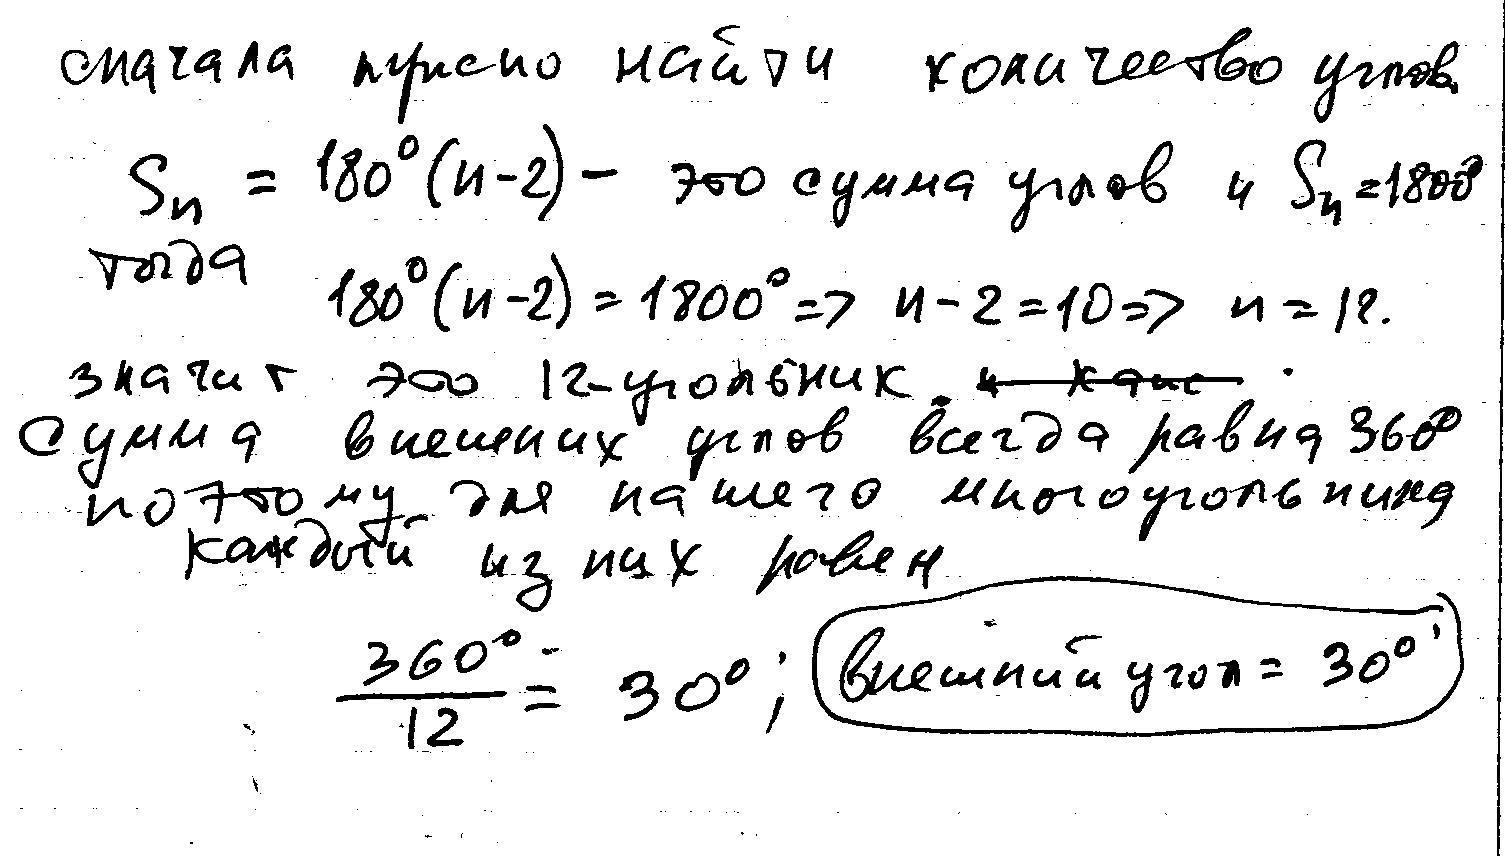 сначала нужно найти количество углов.
Sn = 180°(n-2) - это сумма углов и Sn = 1800°
тогда
180°(n-2) = 1800° => n-2 = 10 => n = 12.
значит это 12-угольник.
Сумма внешних углов всегда равна 360°
поэтому для нашего многоугольника
каждый из них равен
360°/12 = 30°; внешний угол = 30°